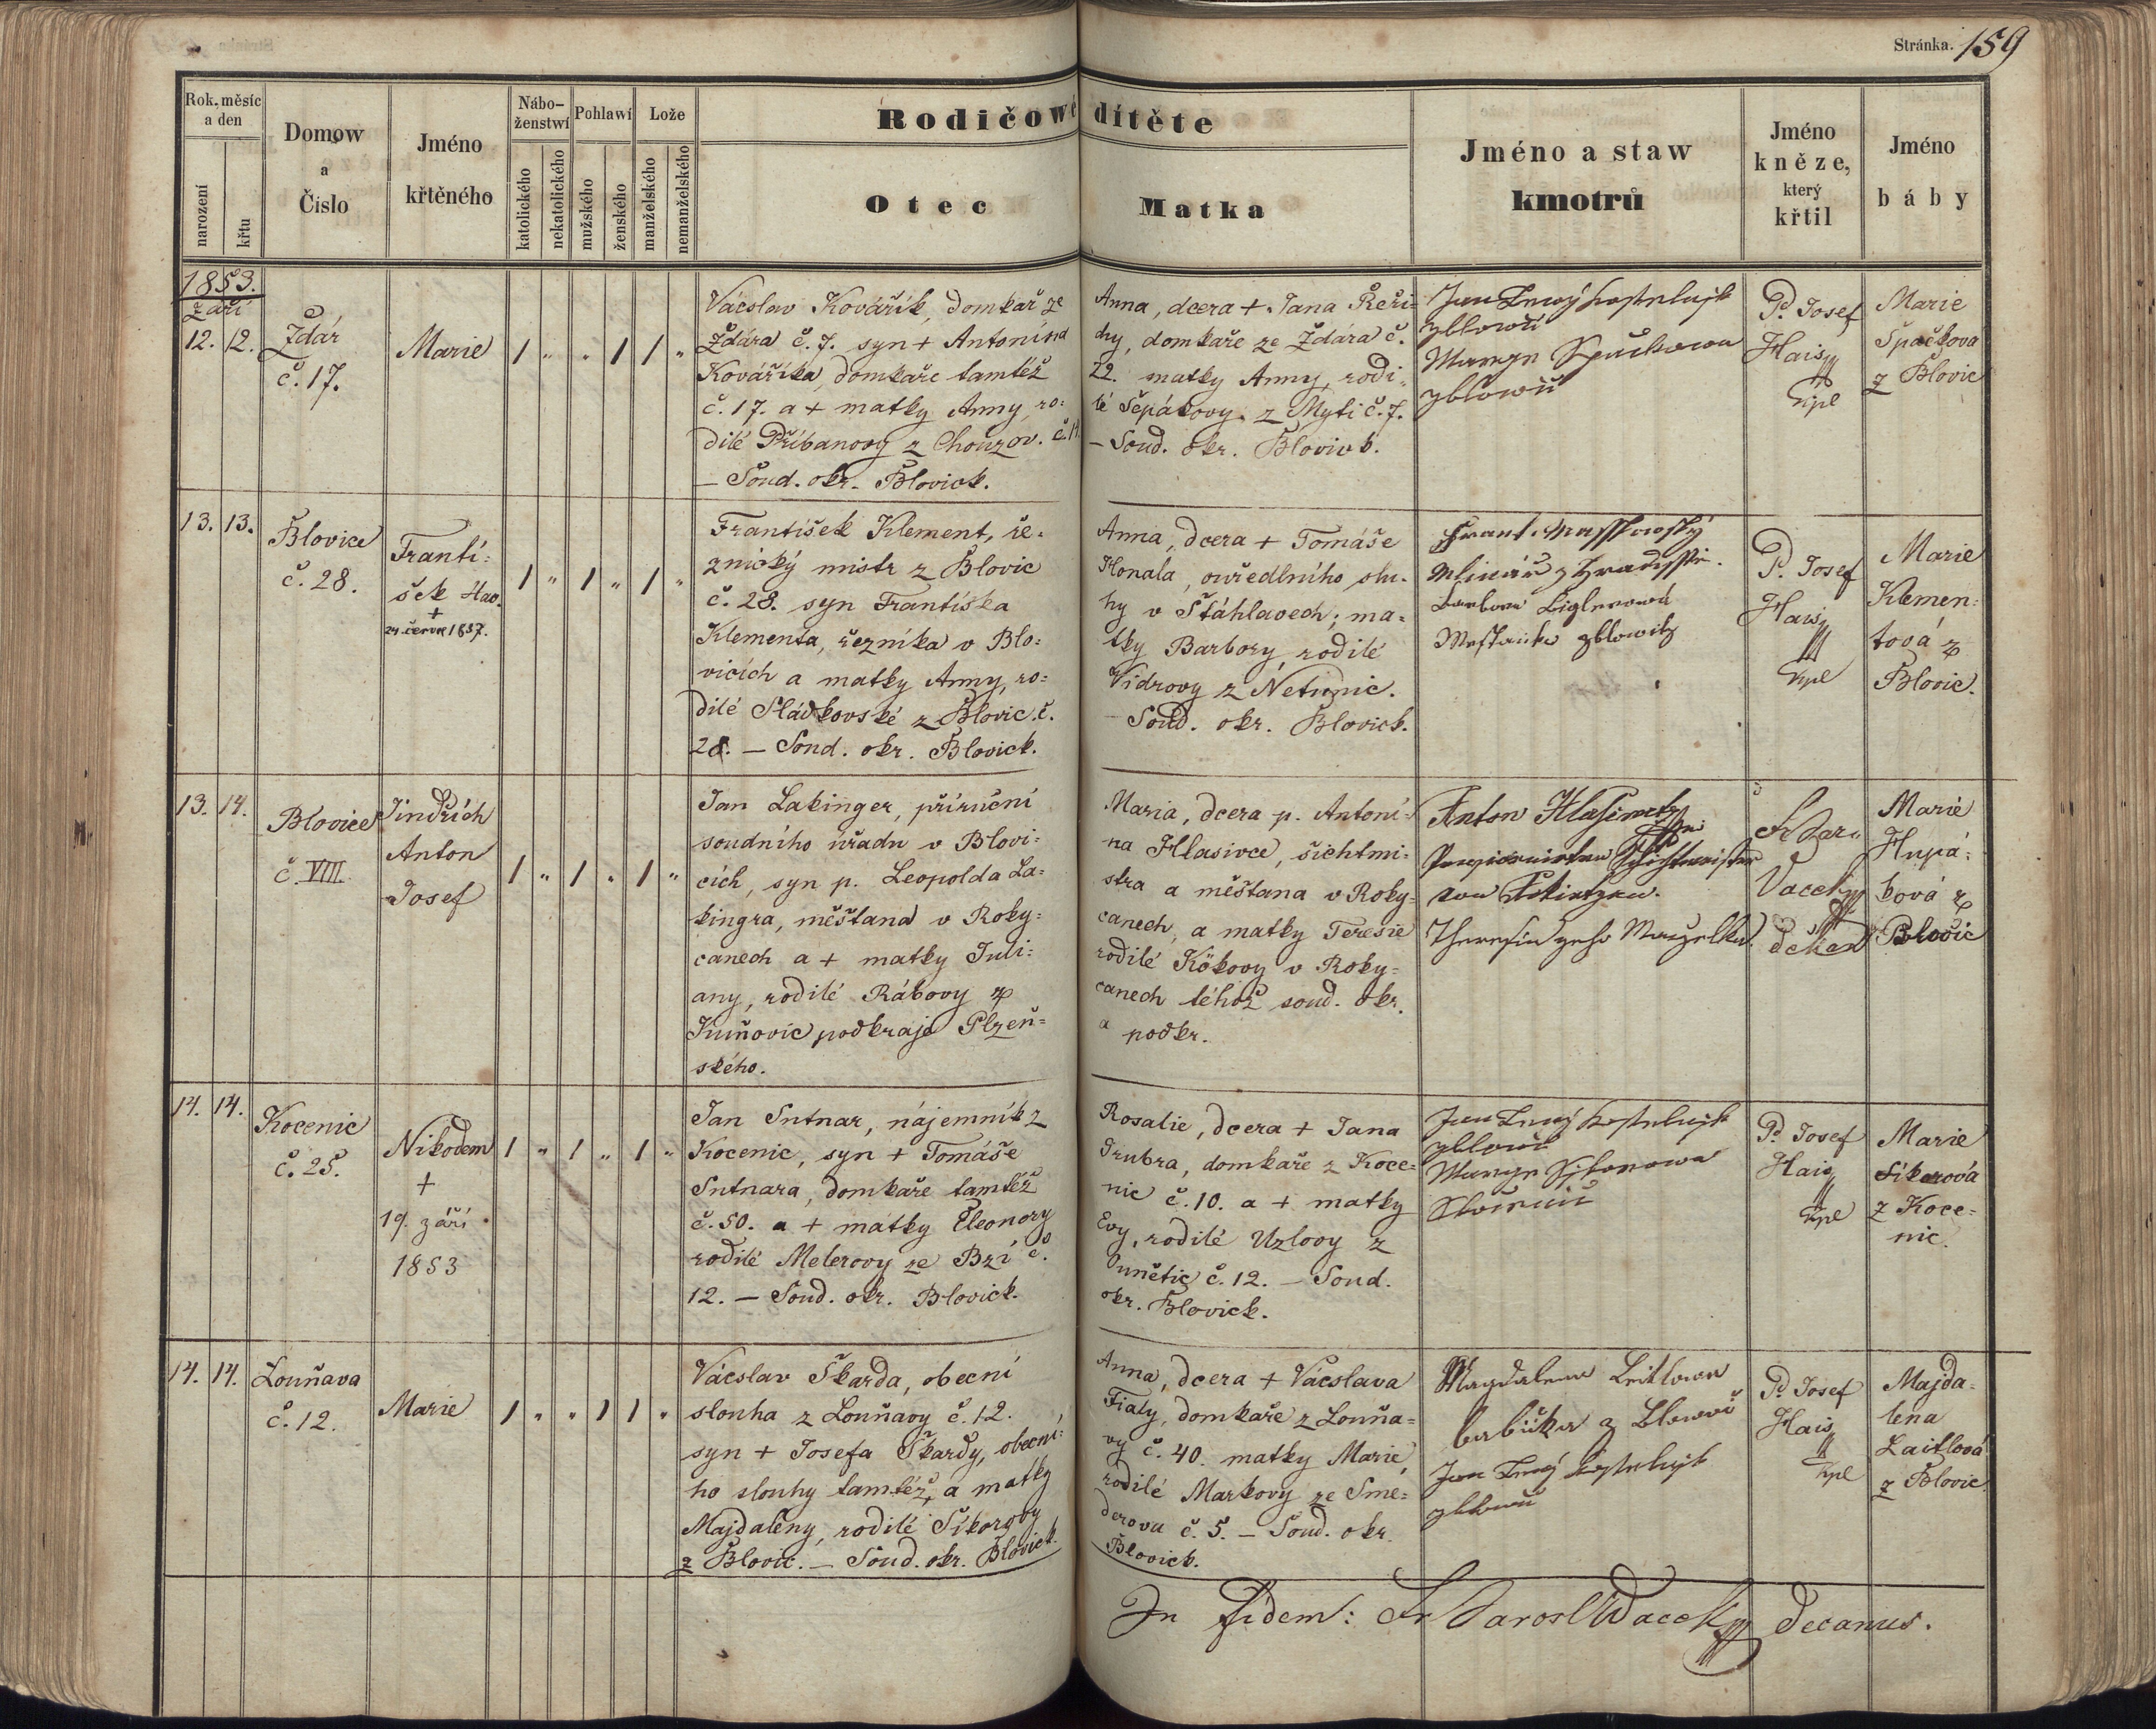 Stránka. 159
Rok, měsíc
a den
narození
křtu
Domow
a
Čislo
Jméno
křtěného
Nábo-
ženstwí
katolického
nekatolického
Pohlawí
mužského
ženského
Lože
manželského
nemanželského
Rodičowé dítěte
Otec
Matka
Jméno a staw
kmotrů
Jméno
kněze,
který
křtil
Jméno
báby
1853.
Září
12. 12.
Ždár
č. 17.
Marie
1 " " 1 1 "
Vácslav Kovářík, domkař ze
Ždára č. 7. syn + Antonína
Kováříka, domkaře tamtéž
č. 17. a + matky Anny, ro:
dilé Příbanovy z Chouzov. č. 14
– Soud. okr. Blovick.
Anna, dcera + Jana Řeři-
chy, domkaře ze Ždára č.
22. matky Anny, rodi-
lé Šepákovy z Myti č. 7.
– Soud. okr. Blovick.
Jan Kostelnjk
z blowic
Maryn Spačkowa
z blowic
P. Josef
Hais
Kpl
Marie
Špačkova
z Blovic
13. 13.
Blovice
č. 28.
Franti:
šek
+
24. červn 1857.
1 " 1 " 1 "
František Klement, ře-
znický mistr z Blovic
č. 28. syn Františka
Klementa, řezníka v Blo:
vicích a matky Anny, ro:
dilé Sládkovské z Blovic. č.
28. – Soud. okr. Blovick.
Anna, dcera + Tomáše
Honala, ouředlního slu-
hy v Štáhlavech; ma-
tky Barbory, rodilé
Vidrovy z Netunic.
– Soud. okr. Blovick.
Frant.
Mlinář z Hradisstě.
Barbora Ziglerowá
Messtanka z blowitz
P. Josef
Hais
Kpl
Marie
Klemen:
tová z
Blovic.
13. 14.
Blovice
č. VIII.
Jindřich
Anton
Josef
1 " 1 " 1 "
Jan Lakinger, příruční
soudního úřadu v Blovi:
cích, syn p. Leopolda La:
kingra, měšťana v Roky:
canech a + matky Juli:
any, rodilé Rábovy z
Kuňovic podkraje Plzeň=
ského.
Maria, dcera p. Antoní-
na Hlasivce, šichtmi:
stra a měšťana v Roky:
canech, a matky Teresie
rodilé Kökovy v Roky=
canech téhož soud. okr.
a podkr.
Anton Hlasiwetz
Schichtmeister
von
Theresia geho Manzelka.
Fr. Jar.
Vacek
děkan
Marie
Hupá:
ková z
Blovic
14. 14.
Kocenic
č. 25.
Nikodem
+
19. září
1853
1 " 1 " 1 "
Jan Sutnar, nájemník z
Kocenic, syn + Tomáše
Sutnara, domkaře tamtéž
č. 50. a + matky Eleonory
rodilé Melerovy ze Bzí č.
12. – Soud. okr. Blovick.
Rosalie, dcera + Jana
Trubra, domkaře z Koce=
nic č. 10. a + matky
Evy, rodilé Uzlovy z
Ounětic č. 12. – Soud.
okr. Blovick.
Jan Kostelnjk
z blowic
Maryn Sykorowa
P. Josef
Hais
Kpl
Marie
Sikorová
z Koce=
nic.
14. 14.
Louňava
č. 12.
Marie
1 " " 1 1 "
Vácslav Škarda, obecní
slouha z Louňavy č. 12.
syn + Josefa Škardy, obecní:
ho slouhy tamtéž, a matky
Majdaleny, rodilé Sikorovy
z Blovic. – Soud. okr. Blovick.
Anna, dcera + Vácslava
Fialy, domkaře z Louňa=
vy č. 40. matky Marie,
rodilé Markovy ze Sme=
derova č. 5. – Soud. okr.
Blovick.
Magdalena Leitlowa
babička z Blowic
Jan Kostelnjk
z blowic
P. Josef
Hais
Kpl
Majda-
lena
Laitlová
z Blovic
In fidem: Fr Jarosl Wacek Decanus.